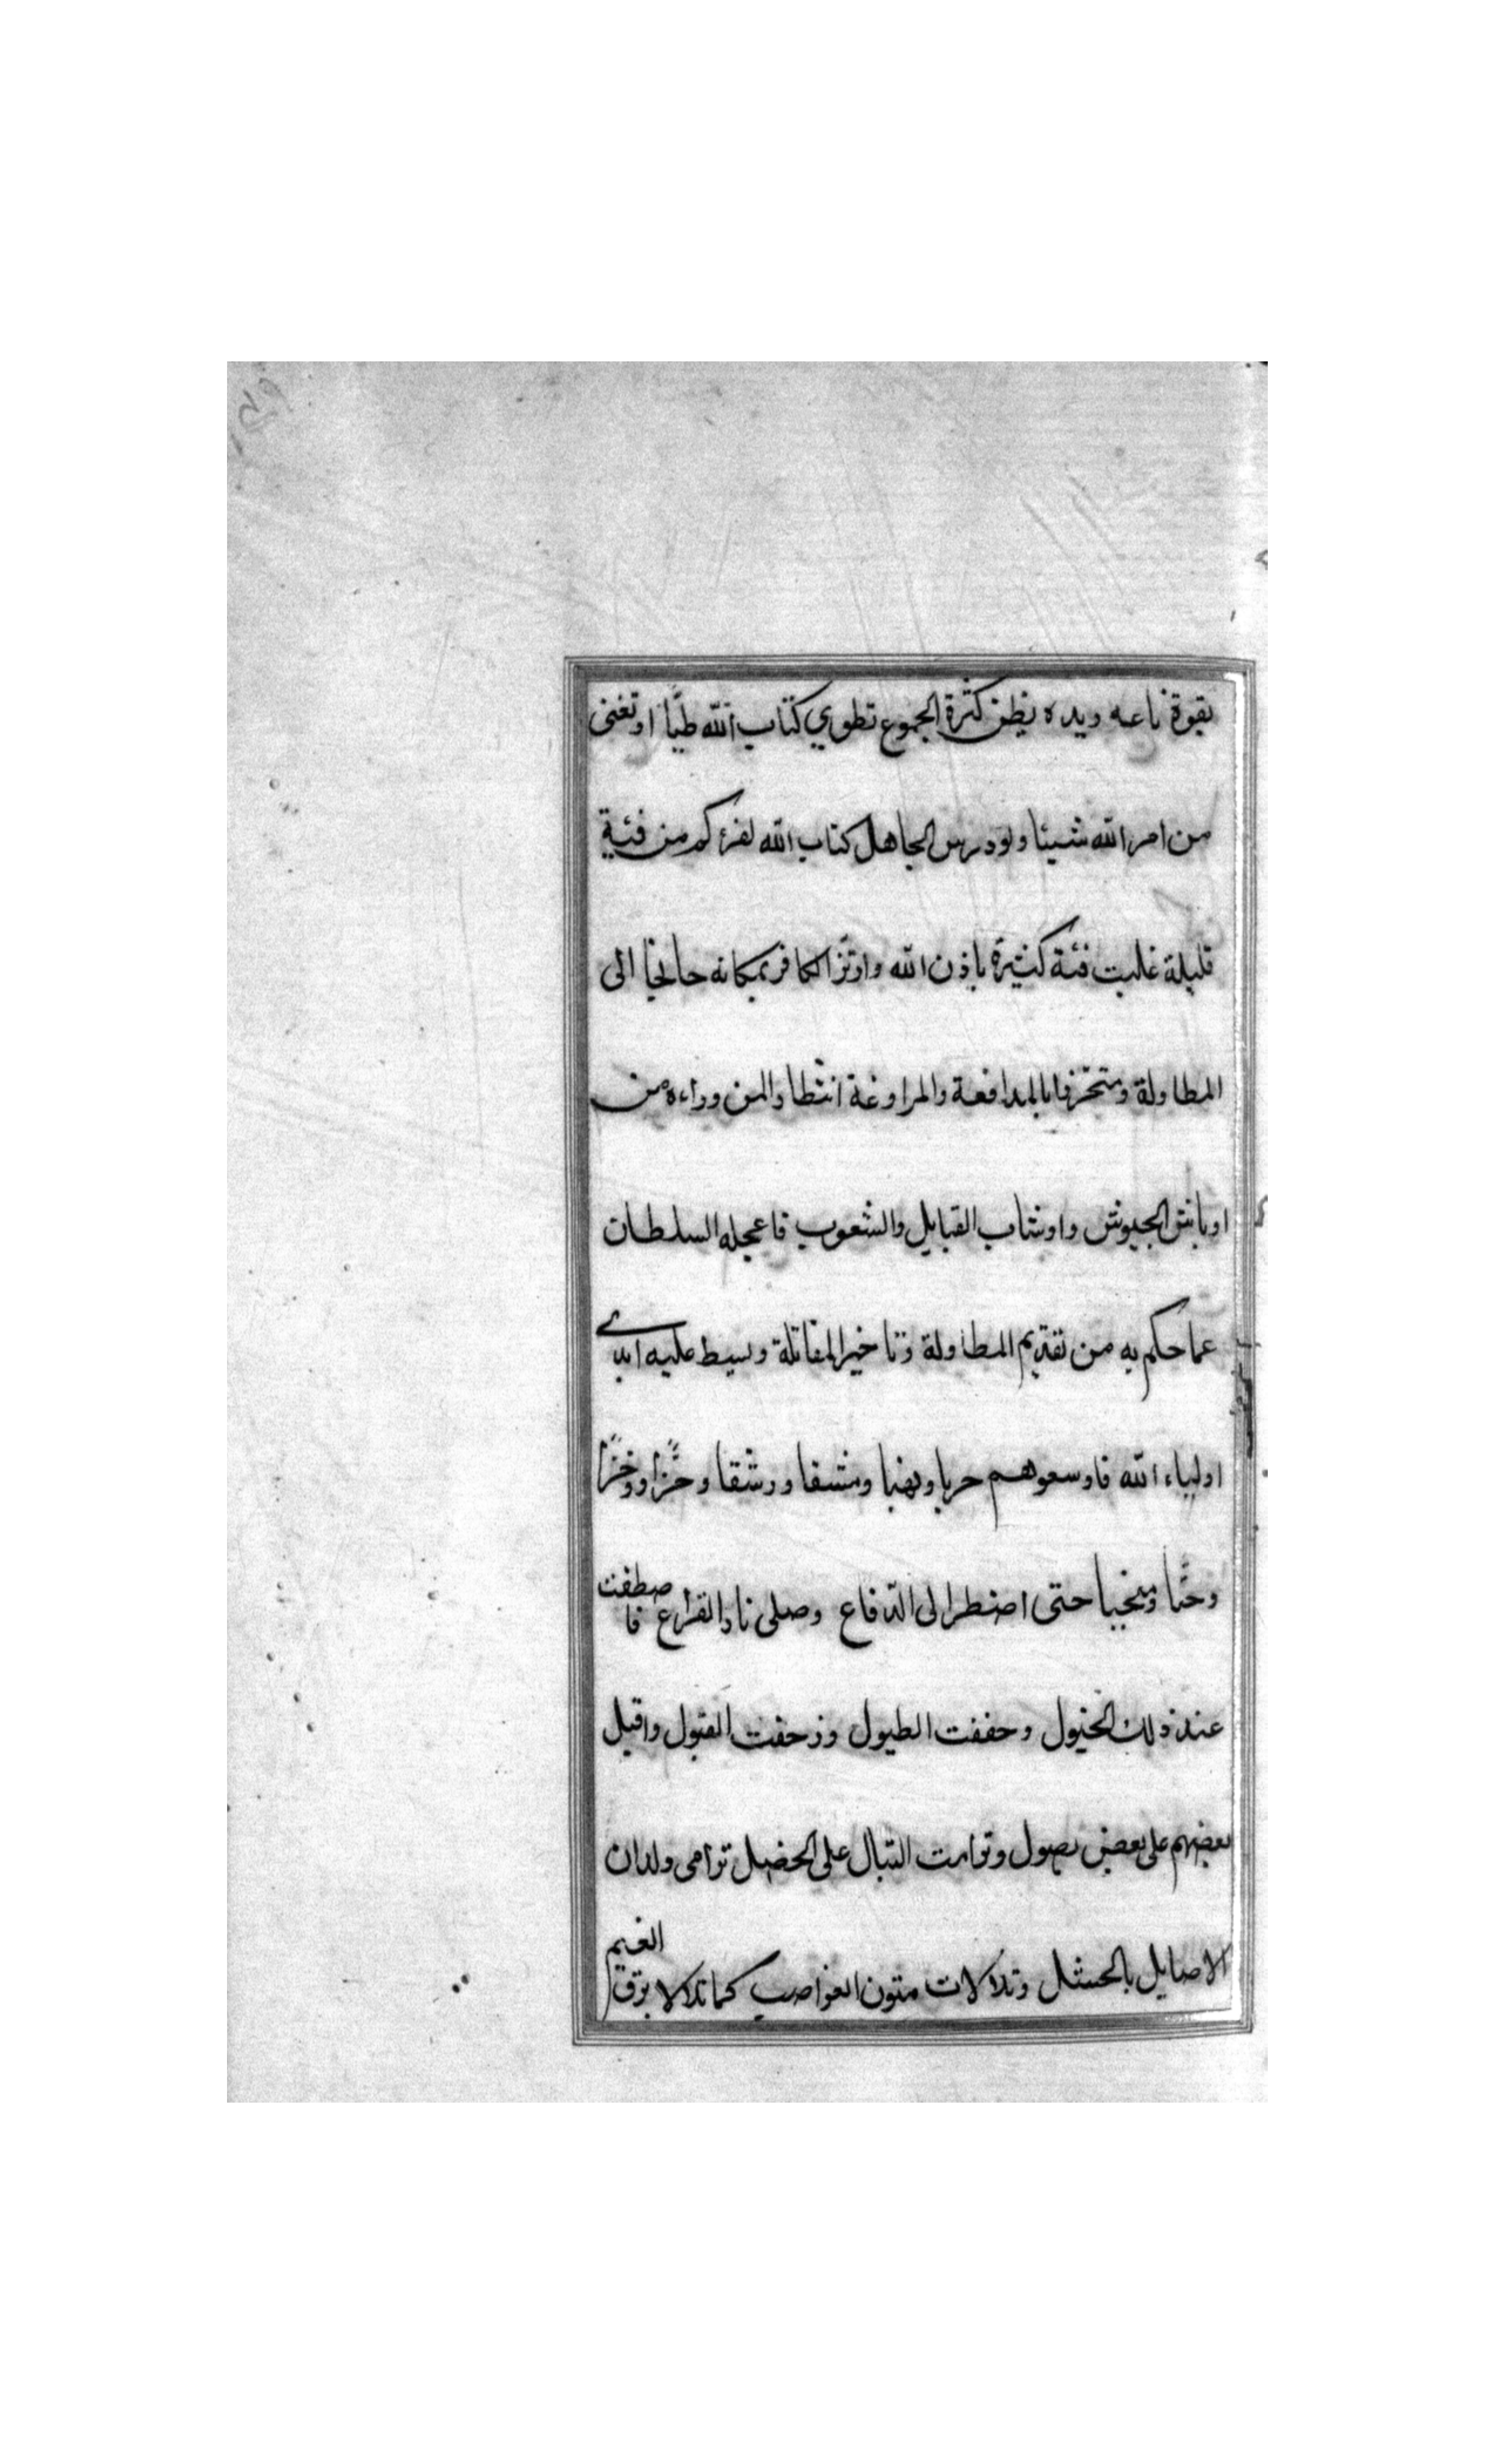 بقوة ناعه ويده نظن كثرة الجموع تطوي كتاب الله طيّا او تغنى
من امر الله شيئا ولو درس الجاهل كتاب الله لقرء كم من فئية
قليلة غلبت فئة كثيرة باذن الله وارتز الكافر بمكانه جانحا الى
المطاولة ومتحرفا بالمدافعة والمراوغة انتظارا لمن وراءه من
اوباش الجيوش واوشاب القبايل والشعوب فاعجله السلطان
عما حكم به من تقديم المطاولة وتاخير المقاتلة وبسط عليه ايدي
اولياء الله فاوسعوهم حربا ونهبا ومشقا ورشقا وحزّا ووخزًا
وحتى اضطر الى الدفاع وصلى نار القراع فاصطفت
عند ذلك الخيول وخفقت الطبول وزحفت الفيول واقبل
بعضهم على بعض يصول وترامت النبال على الخصل ترامى ولدان
الاصايل بالخشل وتلالات متون القواضب كما تلالا بروق الغيم